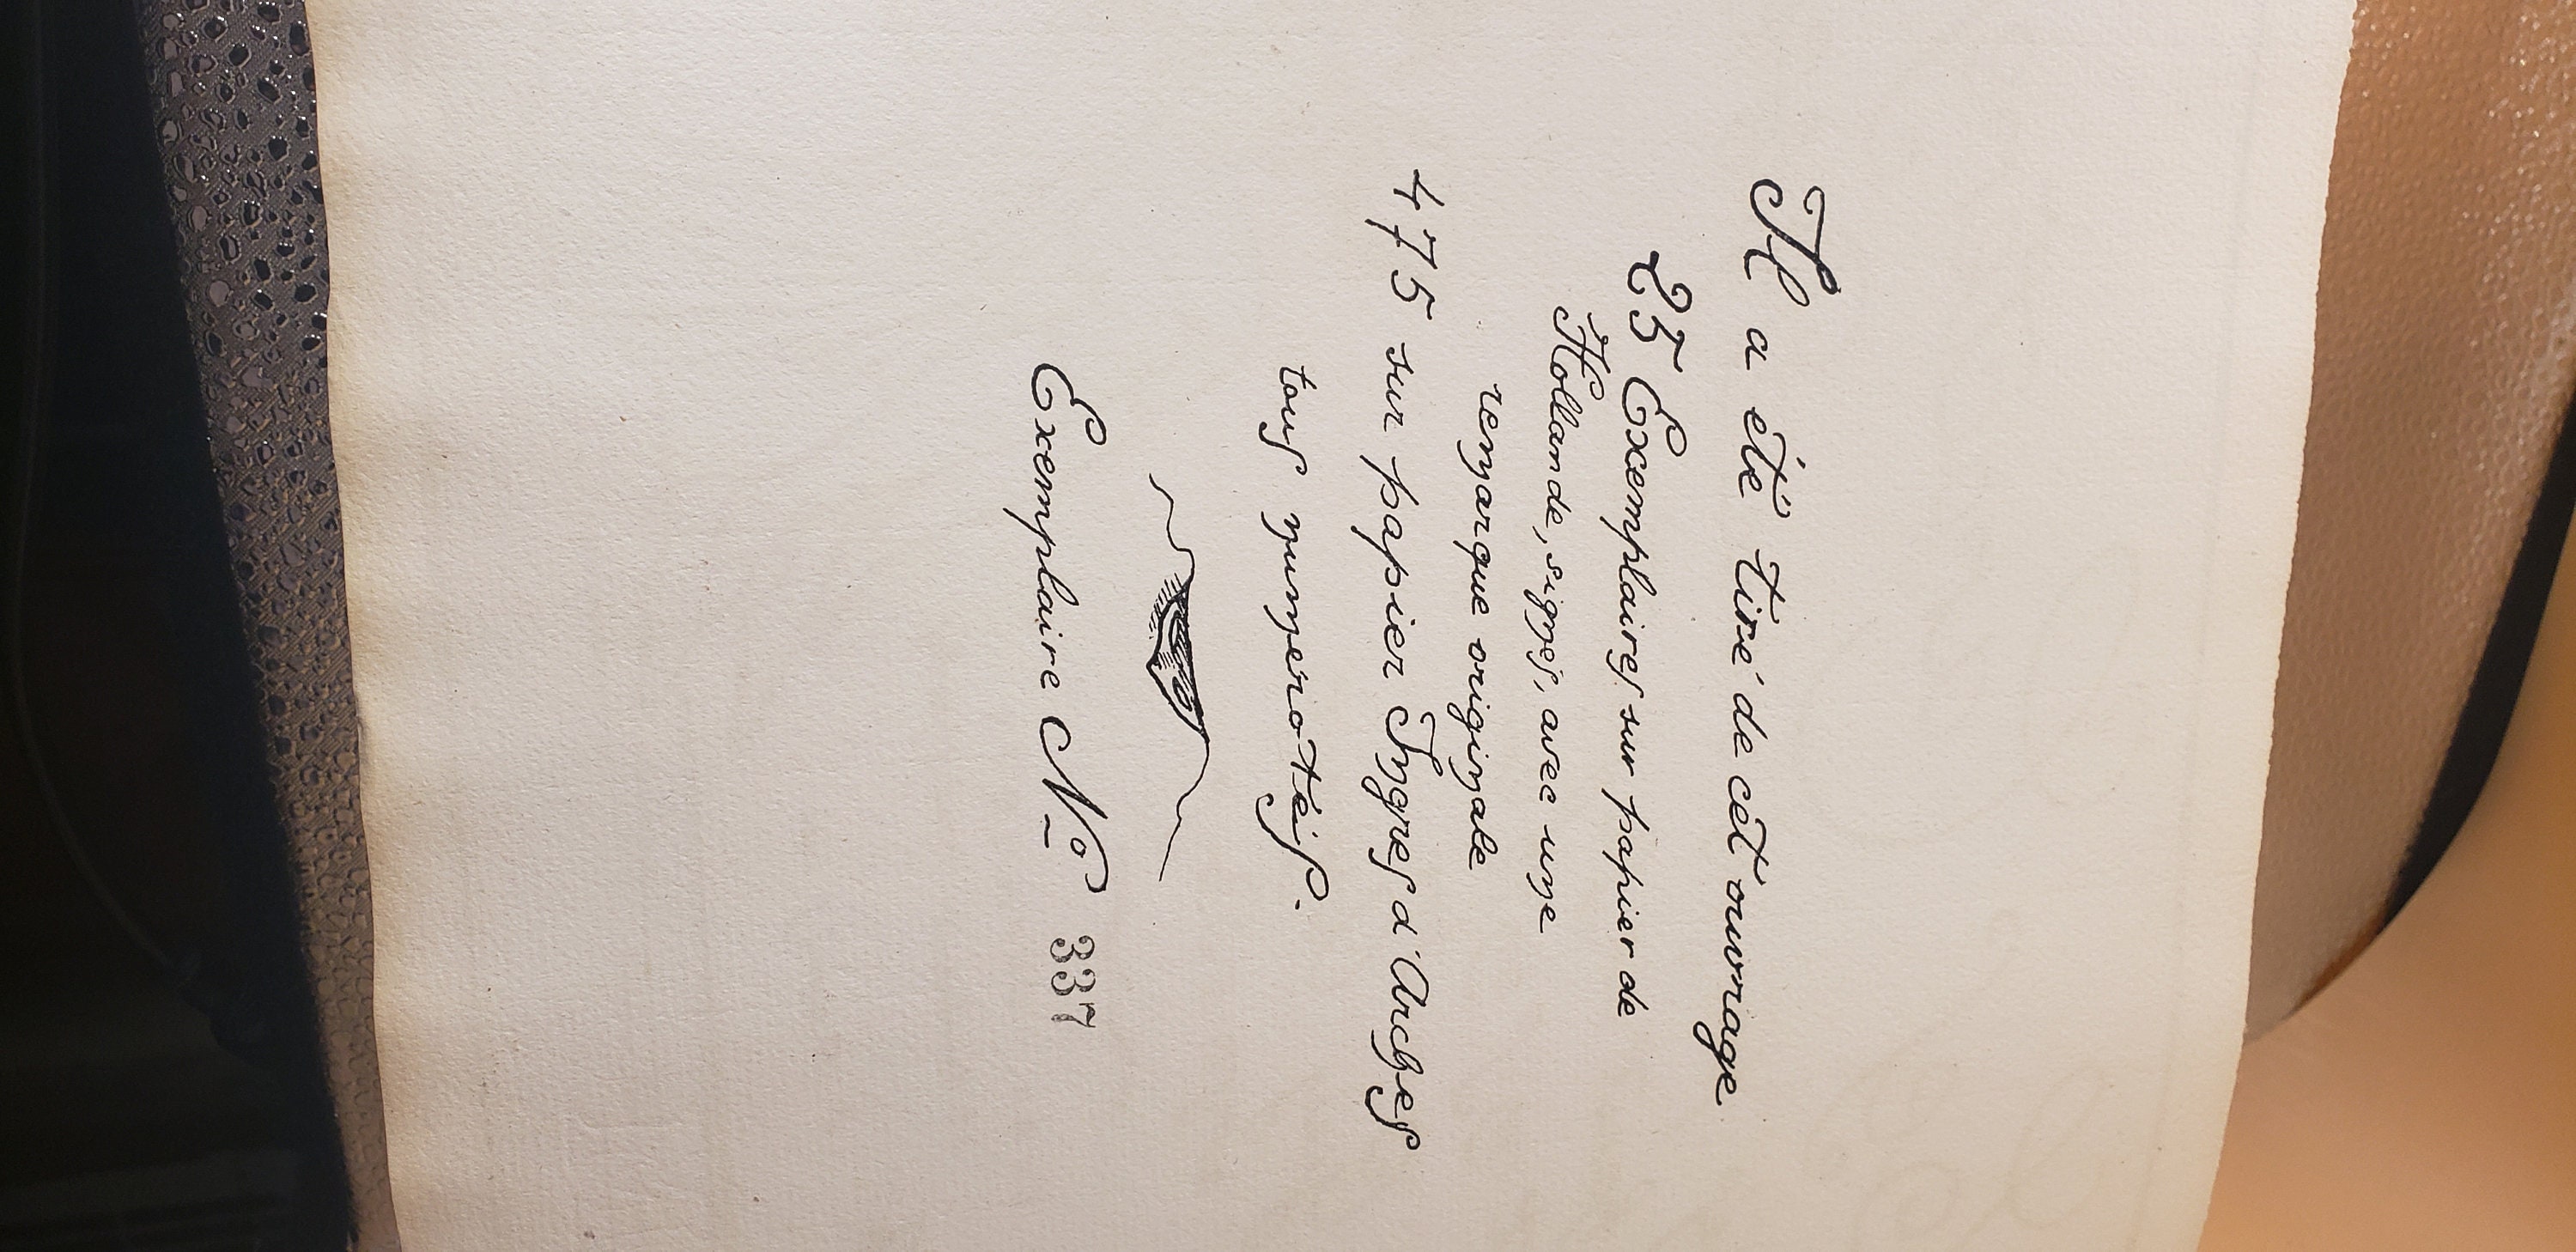 Il a été tiré de cet ouvrage
25 Exemplaires sur papier de
Hollande, signés, avec une
remarque originale
475 sur papier Ingres d'Arches
tous numérotés.
Exemplaire No 337